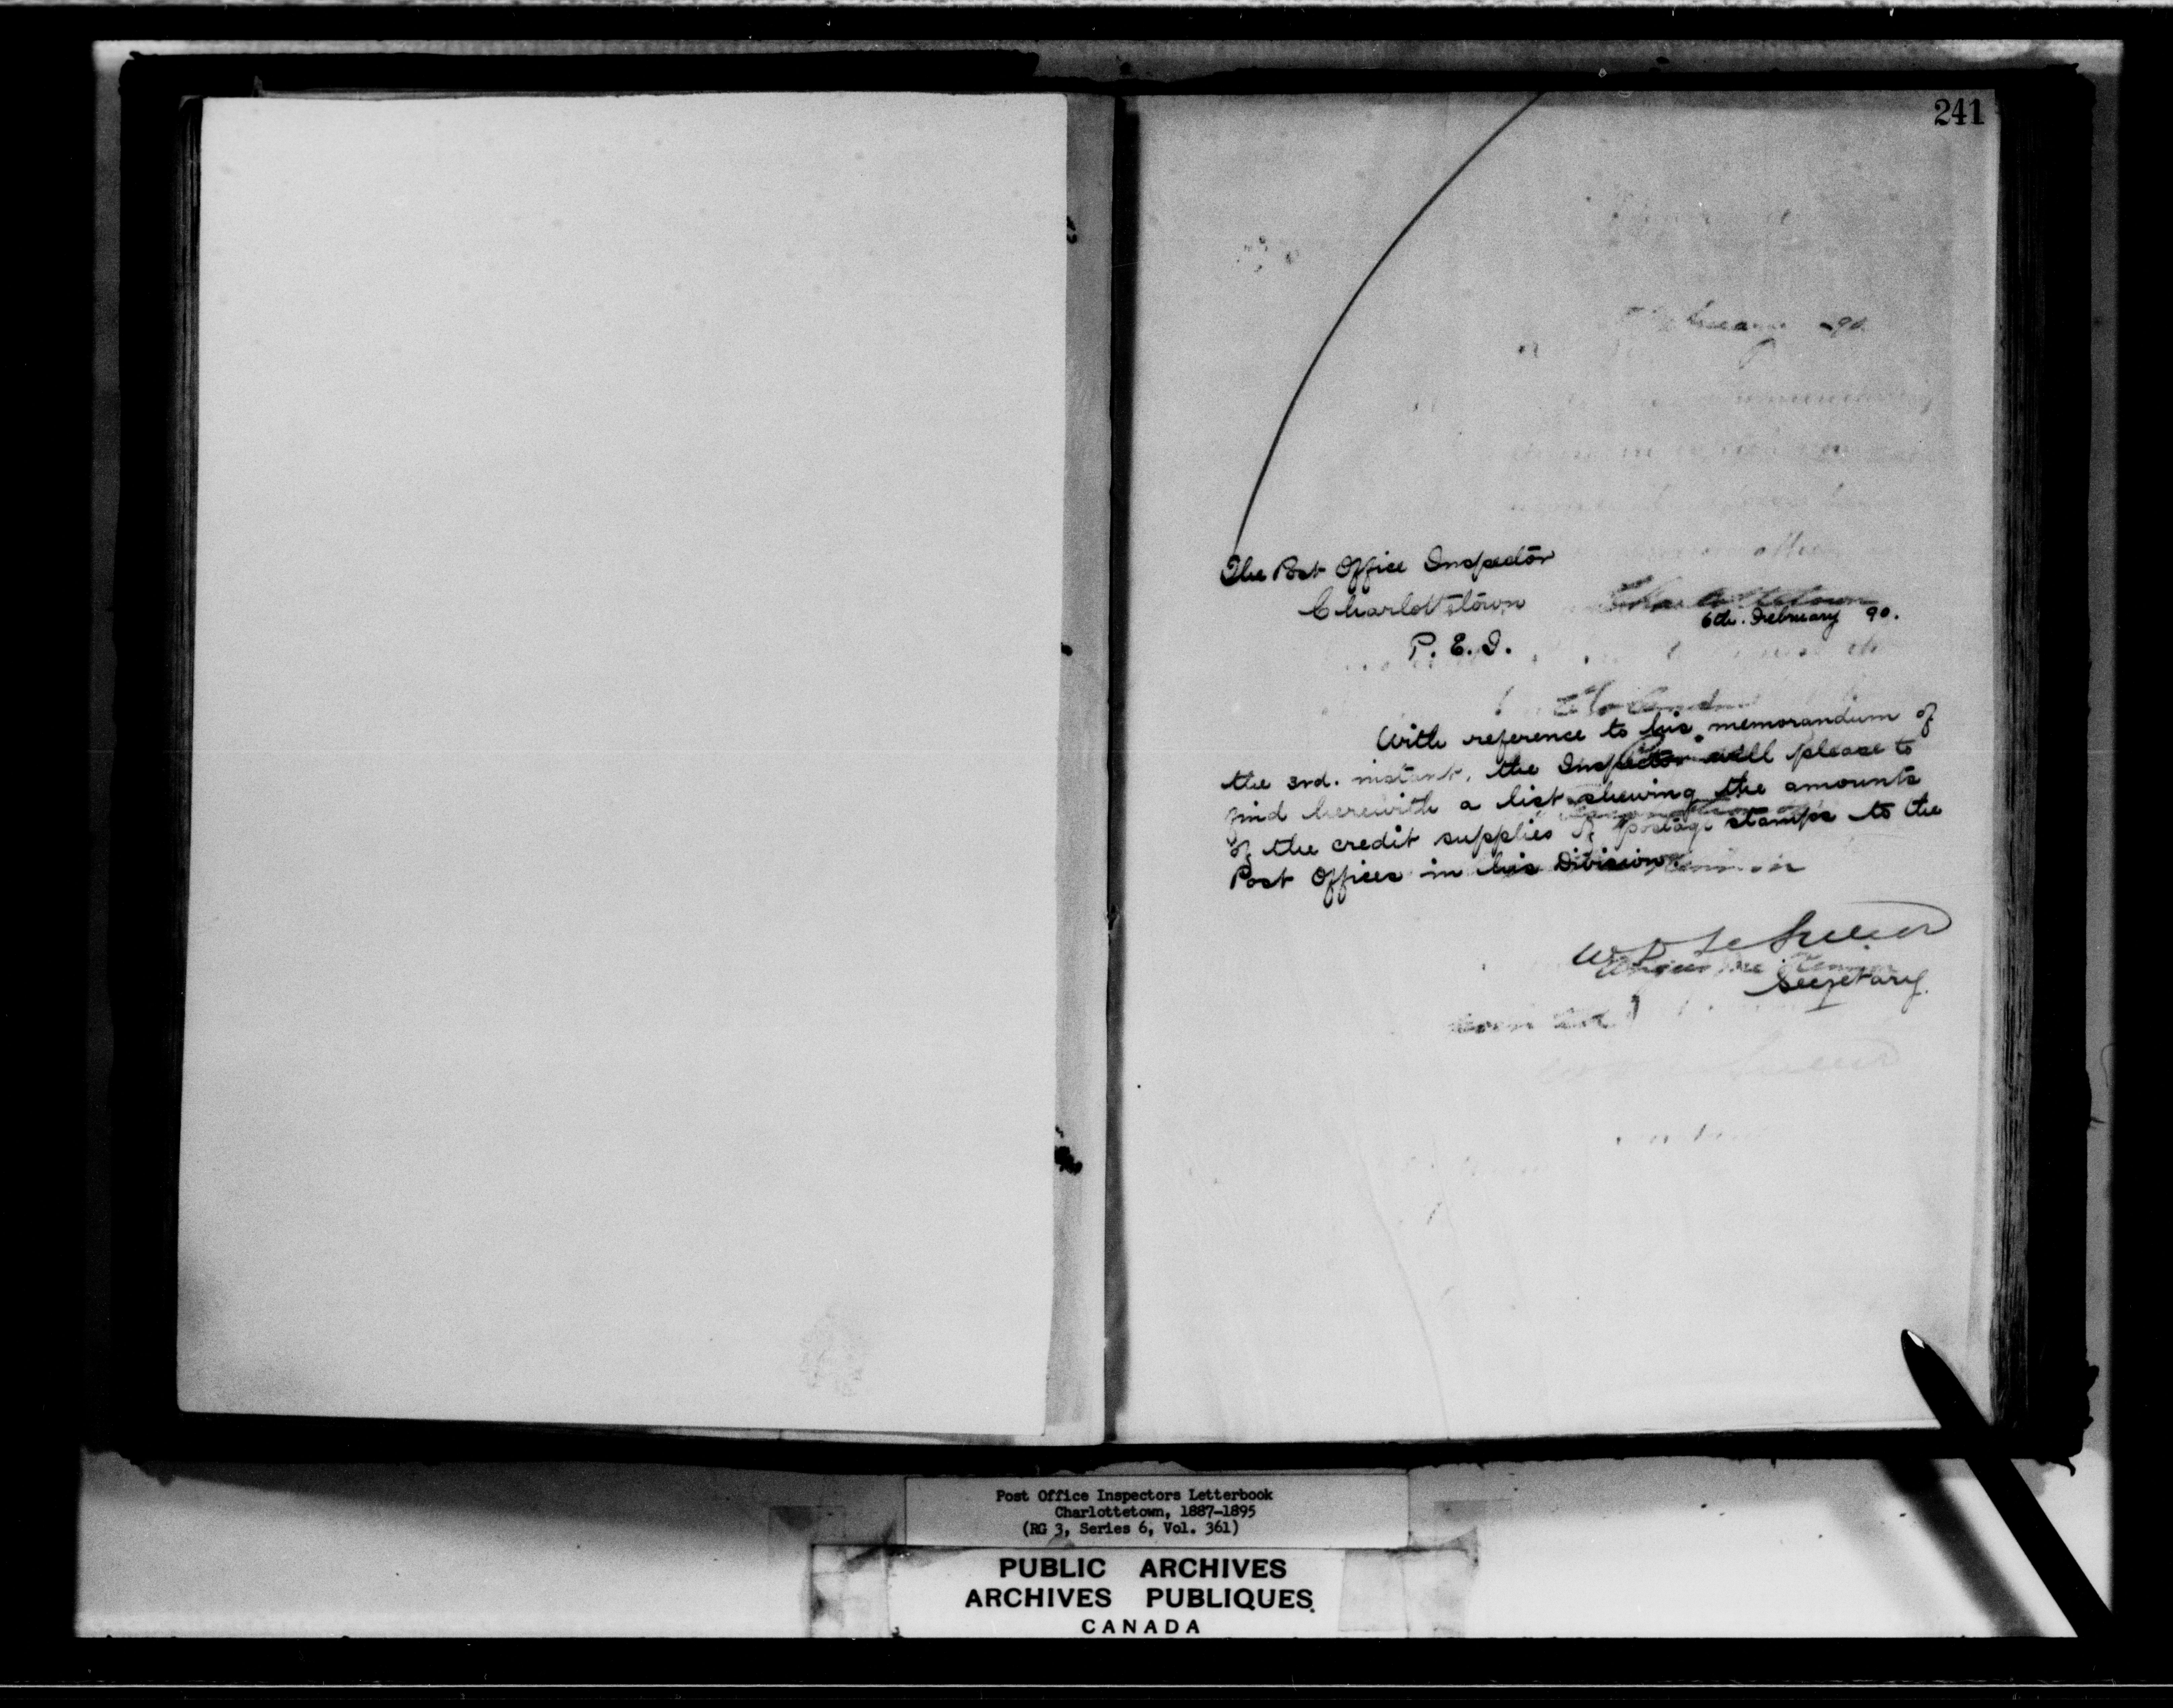 241
The Post Office Inspector
Charlottetown
6th. February 90.
P. E. I.
With reference to his memorandum of
the 3rd. instant, the Inspector will please to
find herewith a list shewing the amounts
of the credit supplies of postage stamps to the
Post Offices in his Division.
W D LeSueur
Secretary.
Post Office Inspectors Letterbook
Charlottetown, 1887-1895
(RG 3, Series 6, Vol. 361)
PUBLIC ARCHIVES
ARCHIVES PUBLIQUES
CANADA